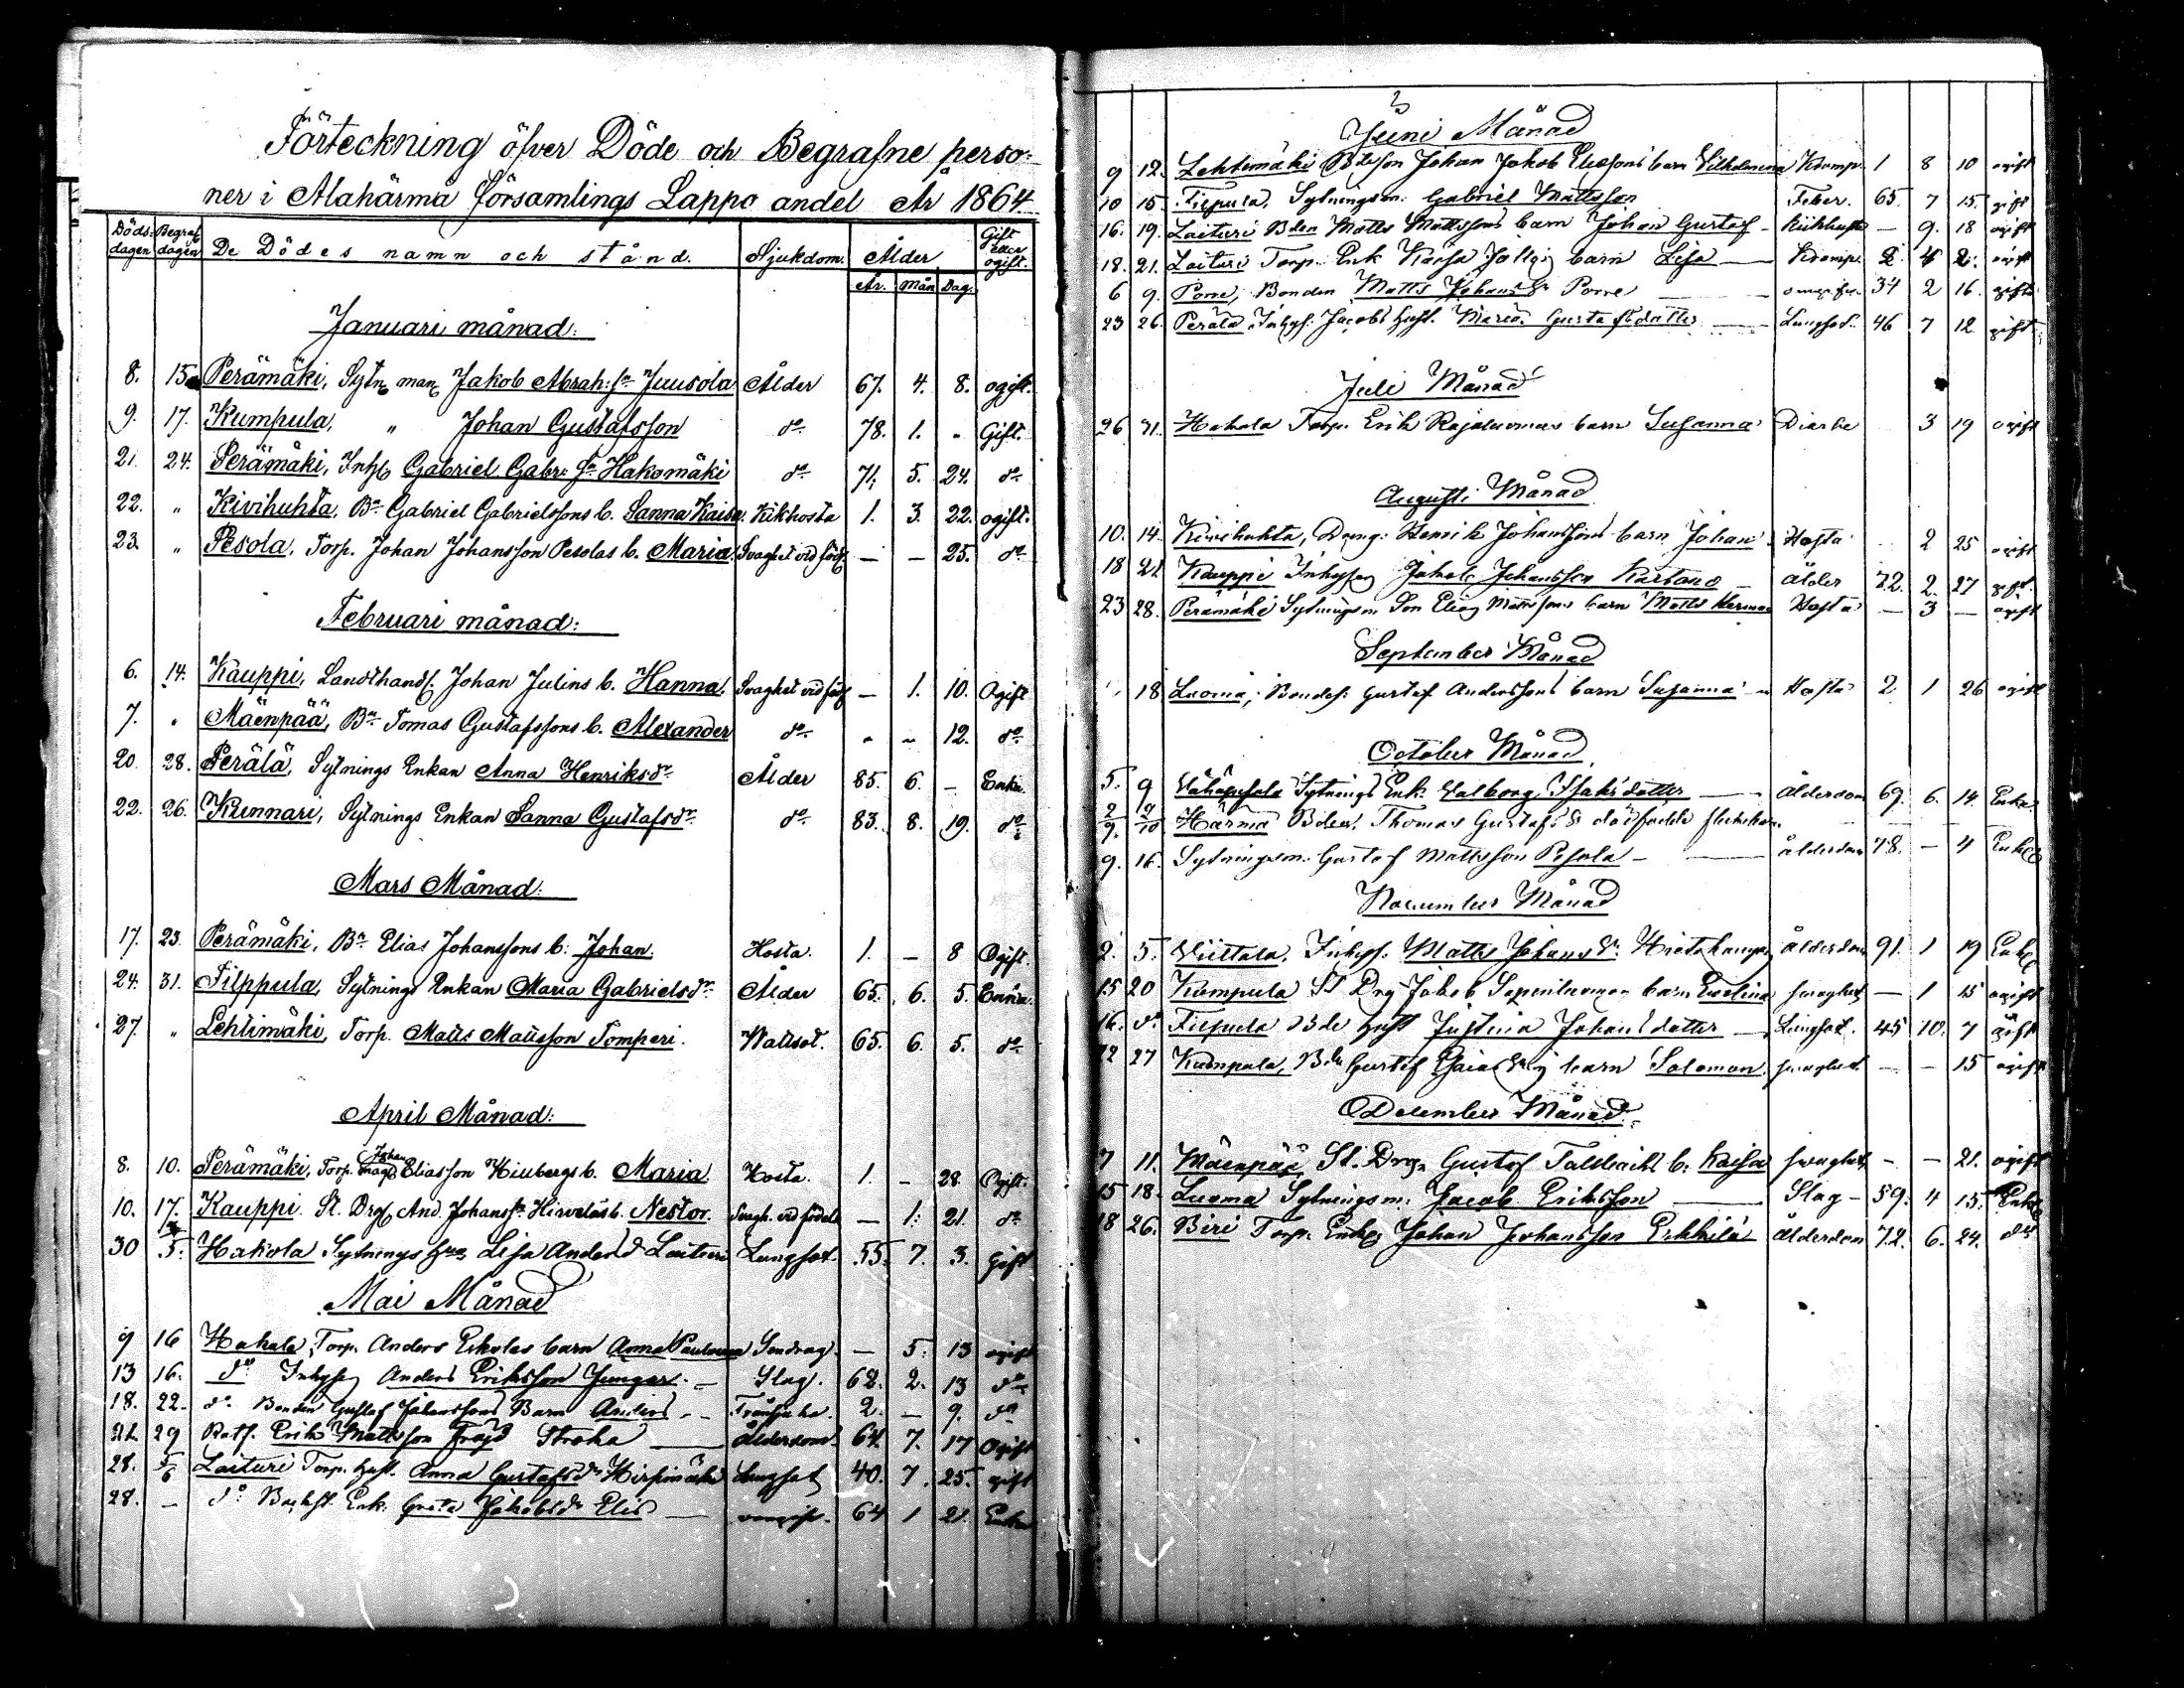 Förteckning öfver Döde och Begrafne perso-
ner i Alahärmä församlings Lappo andel År 1864.
Döds- dagen Begraf. dagen De Dödes namn och stånd. Sjukdom. Ålder Gift eller ogift.
År. Mån Dag.
Januari månad:
8. 15 Perämäki, Sytn. man Jakob Abrah:sn Juusola Ålder 67. 4. 8. ogift.
9. 17. Kumpula, " Johan Gustafsson do 78. 1. " Gift.
21. 24. Perämäki, Inh. Gabriel Gabr: sn Hakomäki do 71. 5. 24. do
22. " Kivihuhta, Bn Gabriel Gabrielssons b. Sanna Kaisa. Kikhosta 1. 3. 22. ogift.
23. " Pesola, Torp. Johan Johansson Pesolas b. Maria. Svaghet vid föds. — — 25. do
Februari månad:
6. 14. Kauppi, Landthandl. Johan Julins b. Hanna. Svaghet vid föds — 1. 10. Ogift
7. " Mäenpää, Bn Tomas Gustafssons b. Alexander do " " 12. do
20. 28. Perälä, Sytnings Enkan Anna Henriksdr Ålder 85. 6. — Enka.
22. 26. Kunnari, Sytnings Enkan Sanna Gustafsdr do 83. 8. 19. do
Mars Månad:
17. 23. Perämäki, Bn Elias Johanssons b: Johan. Hosta. 1. — 8 Ogift.
24. 31. Filppula, Sytnings Enkan Maria Gabrielsdr Ålder 65. 6. 5. Enka.
27. " Lehtimäki, Torp. Matts Mattsson Tomperi. Wattsot. 65. 6. 5. do
April Månad:
8. 10. Perämäki, Torp. Johan Eliasson Hiubergs b. Maria. Hosta. 1. — 28 Ogift.
10. 17. Kauppi. St. Drg. And. Johanssn Hirveläs b. Nestor. Svagh. vid födels — 1. 21. do
30 5. Hakola Sytnings Lisa Andersd Laituri Lungsot. 55. 7. 3. gift
Mai Månad
9 16 Hakala, Torp. Anders Eskolas barn Anna Paulina Sendrag. — 5. 13 ogift
13 16. do Inhyses Anders Eriksson Jungar — Slag. 62. 2. 13 do
18. 22. do Bonden Gustaf Johanssons Barn Anders — 2. — 9. do
22. 29 Rotf. Erik Mattsson Fröjd Stroka — ålderdom. 64. 7. 17 Ogift
28. 5/6 Laituri Torp. hust. Anna Gustafsdr Hirsimäki Lungsot 40. 7. 25. gift
28. — do Enk. Greta Jakobsdr Elis — 64 1 21. Enka
Juni Månad
9 12. Lehtimäki Bdeson Johan Jakob Eliassons barn Vilhelmina Kramp. 1 8 10 ogift
10 15 Filpula, Sytningsm. Gabriel Mattsson Feber. 65. 7 15. gift
16. 19. Laituri Bden Matts Mattssons barn Johan Gustaf — Kikhosta — 9. 18 ogift
18. 21. Laituri Torp. Enk Kaisa barn Lisa — Kramp. 2 4 2. ogift
6 9. Porre, Bonden Matts Johans Sn Porre — 34 2 16. gift
23 26. Perälä, Inhys. Jacobs hust. Maria Gustafsdotter — Lungsot. 46 7 12 gift
Juli Månad
26 31. Hakala Torp. Erik Rajaluomas barn Susanna Diarhe 3 19 ogift
Augusti Månad
10. 14. Kivihuhta, Dräng. Henrik Johanssons barn Johan Hosta — 2 25 ogift
18 21 Kauppi Inhyses Jakob Johansson Kartano — ålder 72. 2. 27 gift.
23 28. Perämäki Sytningsm Son Elias Mattssons barn Matts Herman Hosta — 3 — ogift
September Månad
18 Luoma, Bondes. Gustaf Anderssons barn Susanna Hosta 2 1 26 ogift
October Månad
5. 9 Sytnings Enk. Valborg Isaksdotter — ålderdom 69. 6. 14. Enka
2/9. 2/10 Härmä Bden. Thomas Gustafs Sn dödfödde
9. 16. Sytningsm. Gustaf Mattsson Pesola — ålderdom 78. — 4 Enkl.
November Månad
2. 5. Viitala, Inhys. Matts Johans Sn Hietakangas ålderdom 91. 1 19 Enkl.
15 20 Kumpula St Drg Jakob barn Evelina svaghet — 1 15 ogift
16. do Filpula Bde hust Justina Johansdotter — Lungsot. 45 10. 7 gift
22 27 Kumpula, Bde Gustaf Esaias barn Salomon. svaghet — — 15 ogift
December Månad
7 11. Mäenpää St. Drg. Gustaf b: Kaisa svaghet — — 21. ogift
15 18. Luoma Sytningsm: Jacob Eriksson — Slag — 59. 4 15. Enkl.
18 26. Biri Torp. Enkl. Johan Johansson Erkkilä ålderdom 72. 6. 24. do